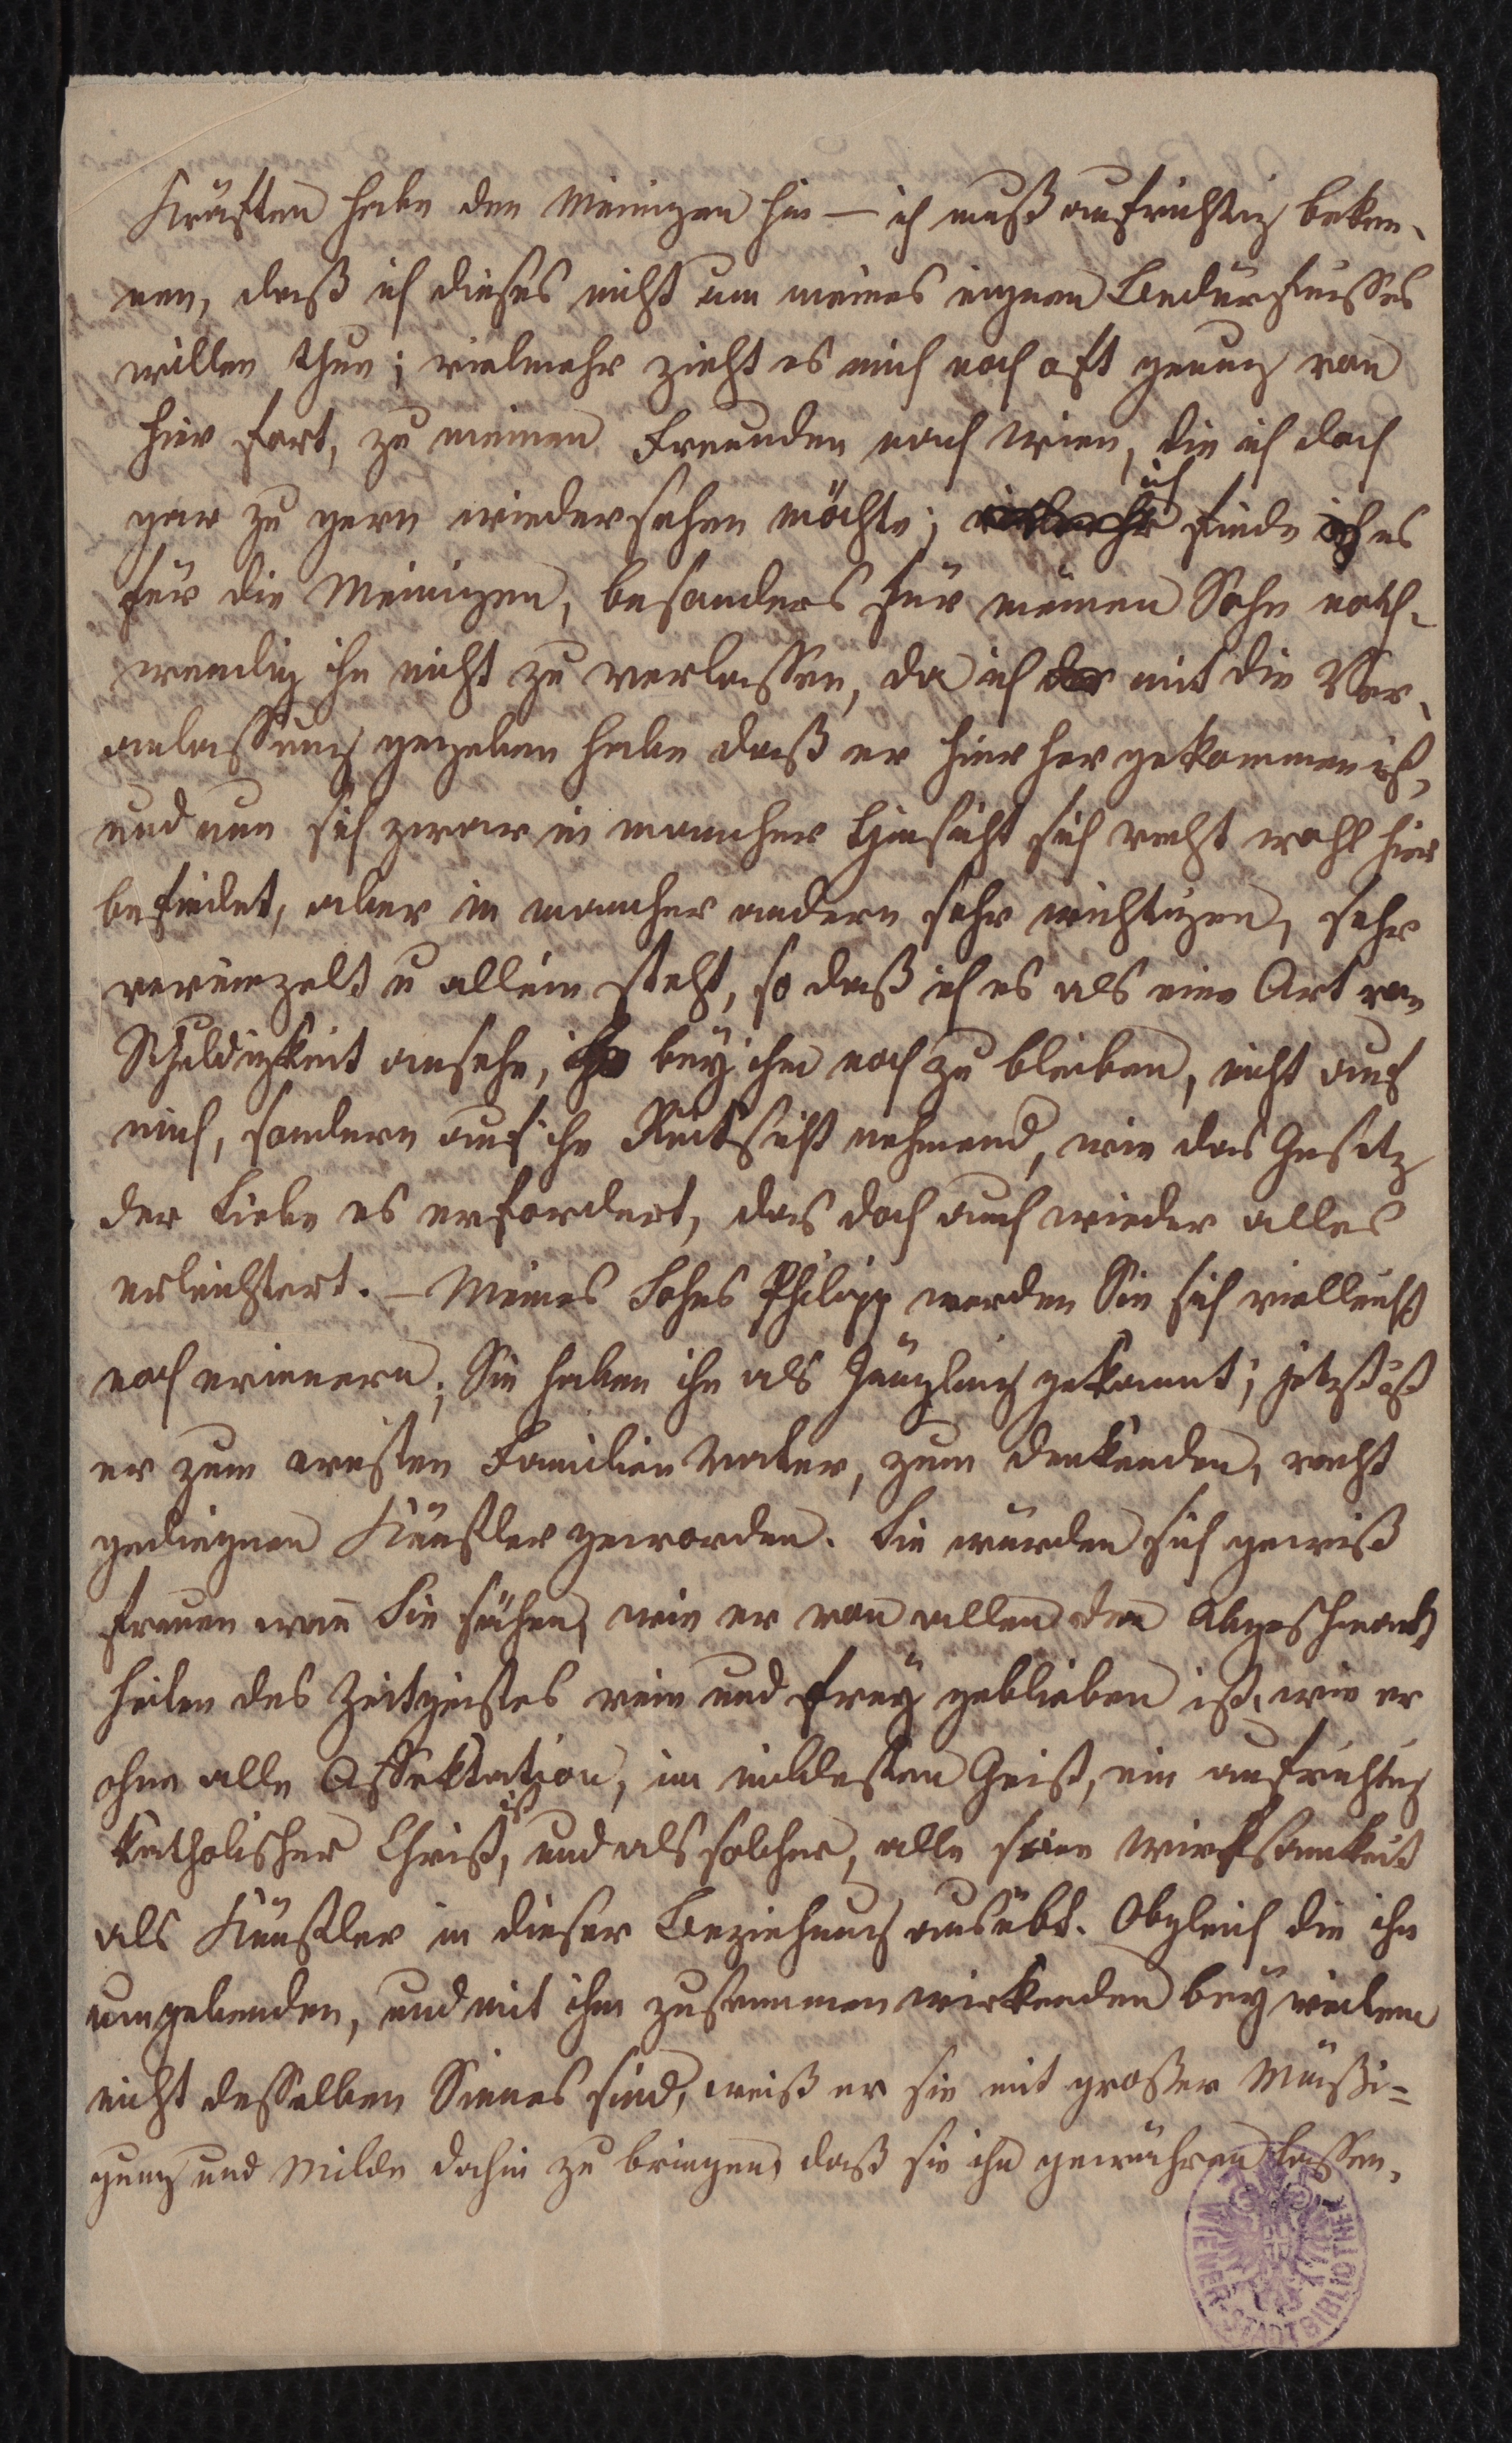 Kräften habe den Meinigen hin — ich muß aufrichtig beken-
nen, daß ich dieses nicht um meines eignen Bedürfnisses
willen thue; vielmehr zieht es mich noch oft genug von
hier fort, zu meinen Freunden nach Wien, die ich doch
gar zu gern wiedersehen möchte; vielmehr ich finde ich es
für die Meinigen, besonders für meinen Sohn noth-
wendig ihn nicht zu verlassen, da ich mit die Ver-
anlassung gegeben habe daß er hier her gekommen ist,
und nun sich zwar in mancher Hinsicht sich recht wohl hier
befindet, aber in mancher andern sehr wichtigen, sehr
vereinzelt u allein steht, so daß ich es als eine Art von
Schuldigkeit ansehe, bey ihm noch zu bleiben, nicht auf
mich, sondern auf ihn Rücksicht nehmend, wie das Gesetz
der Liebe es erfordert, das doch auch wieder alles
erleichtert. — Meines Sohns Philipp werden Sie sich vielleicht
noch erinnern; Sie haben ihn als Jüngling gekannt; jetzt ist
er zum ernsten Familien Vater, zum denkenden, recht
gediegnen Künstler geworden. Sie würden sich gewiß
freuen wenn Sie sähen, wie er von allen den Abgeschmackt
heiten des Zeitgeistes rein und frey geblieben ist, wie er
ohne alle Affektation, im mildesten Geist, ein aufrichtig
katholischer Christ ist, und als solcher, alle seine Wirksamkeit
als Künstler in dieser Beziehung ausübt. Obgleich die ihn
umgebenden, und mit ihm zusammen wirkenden bey weitem
nicht desselben Sinnes sind, weiß er sie mit großer Mäßi-
gung und Milde dahin zu bringen, daß sie ihn gewähren lassen.
WIENER STADTBIBLIOTHEK